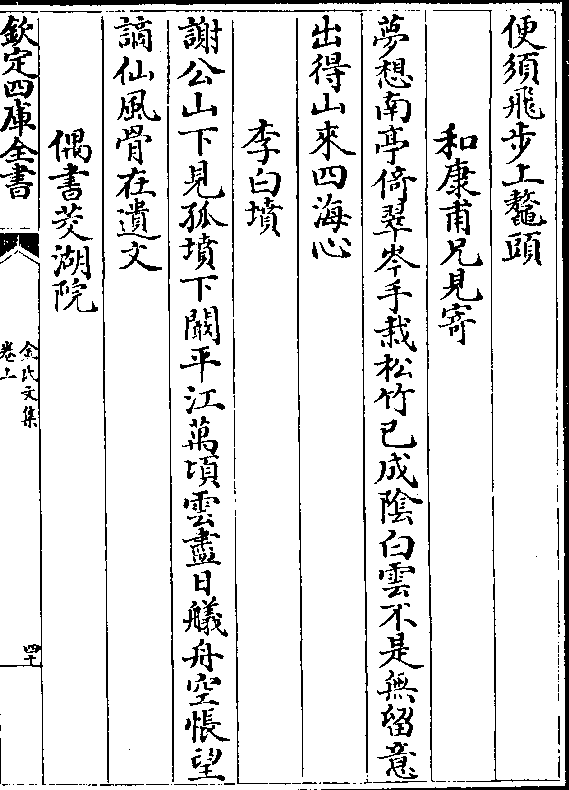 便須飛步上鼇頭
和康甫兄見寄
夢想南亭倚翠岑手栽松竹已成陰白雲不是無留意
出得山來四海心
李白墳
謝公山下見孤墳下闞平江萬頃雲盡日艤舟空悵望
謫仙風骨在遺文
偶書茭湖院
欽定四庫全書
金氏文集
卷上
四十